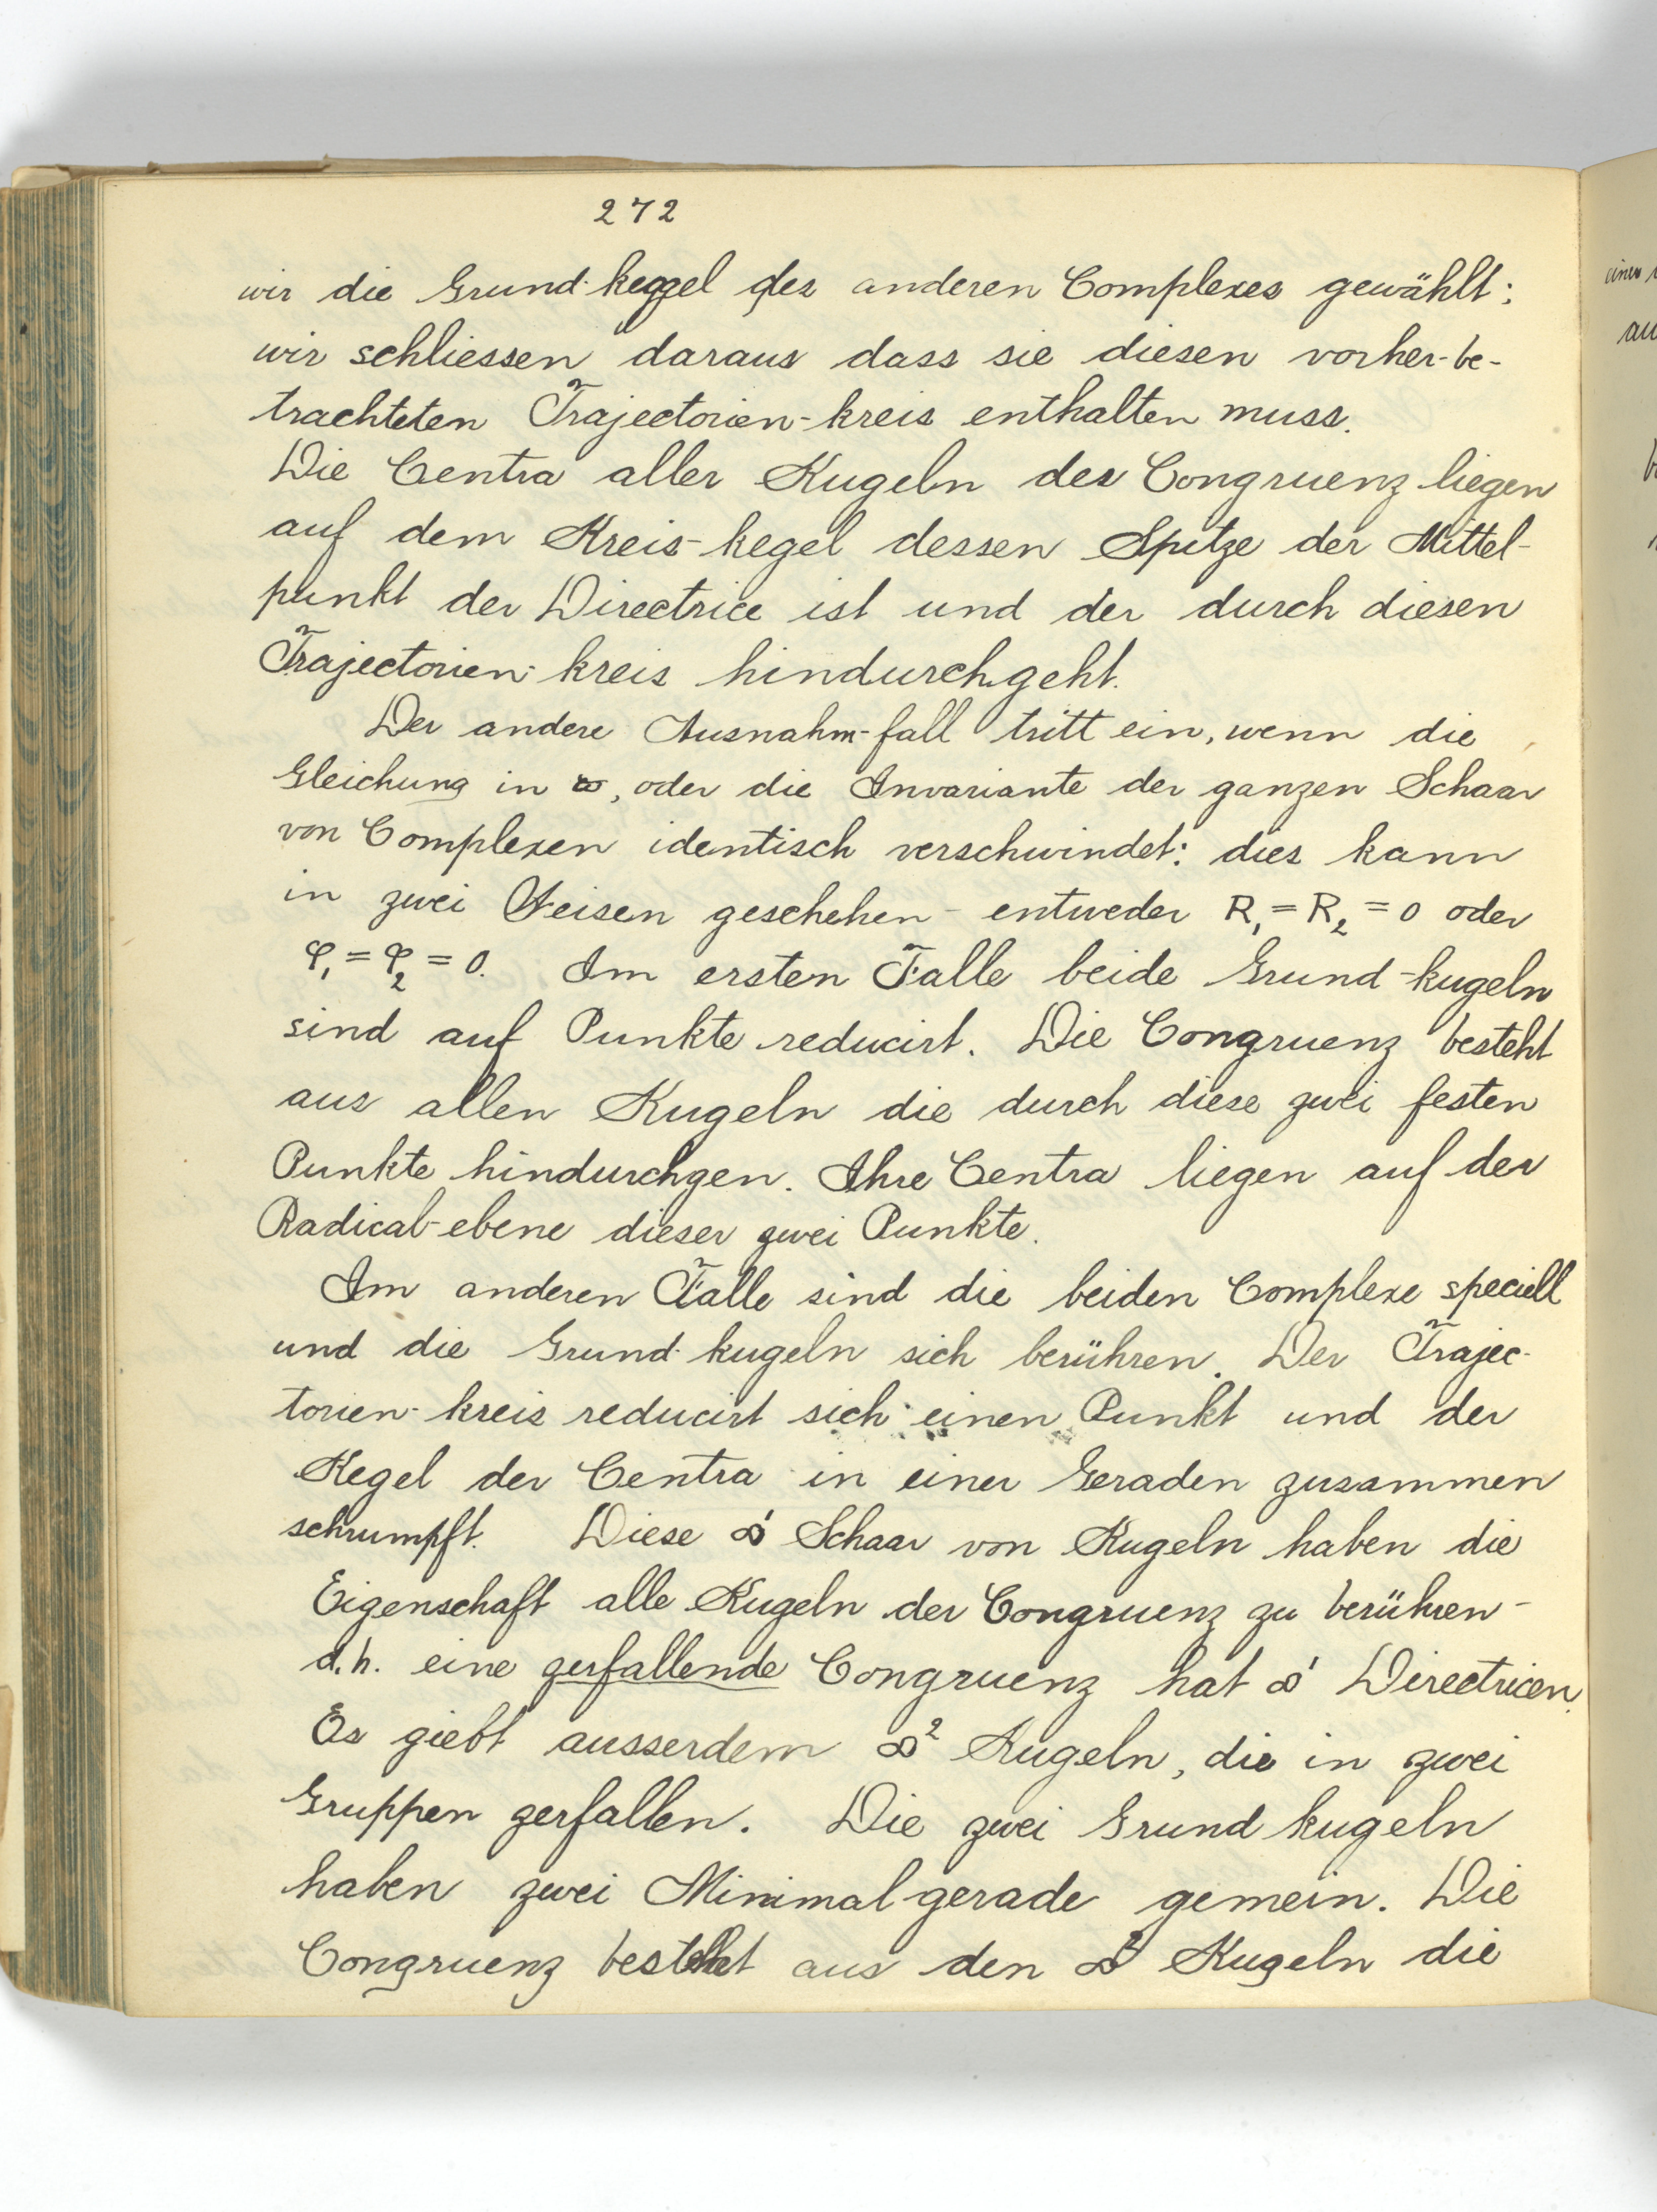 272
wir die Grund-keggel des anderen Complexes gewählt;
wir schliessen daraus dass sie diesen vorher-be-
trachteten Trajectorien-kreis enthalten muss.
Die Centra aller Kugeln der Congruenz liegen
auf dem Kreis-kegel dessen Spitze der Mittel-
punkt der Directrice ist und der durch diesen
Trajectorien-kreis hindurchgeht.
Der andere Ausnahm-fall tritt ein, wenn die
Gleichung in ∞, oder die Invariante der ganzen Schaar
von Complexen identisch verschwindet: dies kann
in zwei Weisen geschehen - entweder R₁ = R₂ = 0 oder
φ₁ = φ₂ = 0. Im ersten Falle beide Grund-kugeln
sind auf Punkte reducirt. Die Congruenz besteht
aus allen Kugeln die durch diese zwei festen
Punkte hindurchgen. Ihre Centra liegen auf der
Radical-ebene dieser zwei Punkte.
Im anderen Falle sind die beiden Complexe speciell
und die Grund-kugeln sich berühren. Der Trajec-
torien-kreis reducirt sich einen Punkt und der
Kegel der Centra in einer Geraden zusammen
schrumpft. Diese ∞¹ Schaar von Kugeln haben die
Eigenschaft alle Kugeln der Congruenz zu berühren -
d.h. eine zerfallende Congruenz hat ∞¹ Directricen.
Es giebt ausserdem ∞² Kugeln, die in zwei
Gruppen zerfallen. Die zwei Grund kugeln
haben zwei Minimal-gerade gemein. Die
Congruenz besteht aus den ∞² Kugeln die
einen